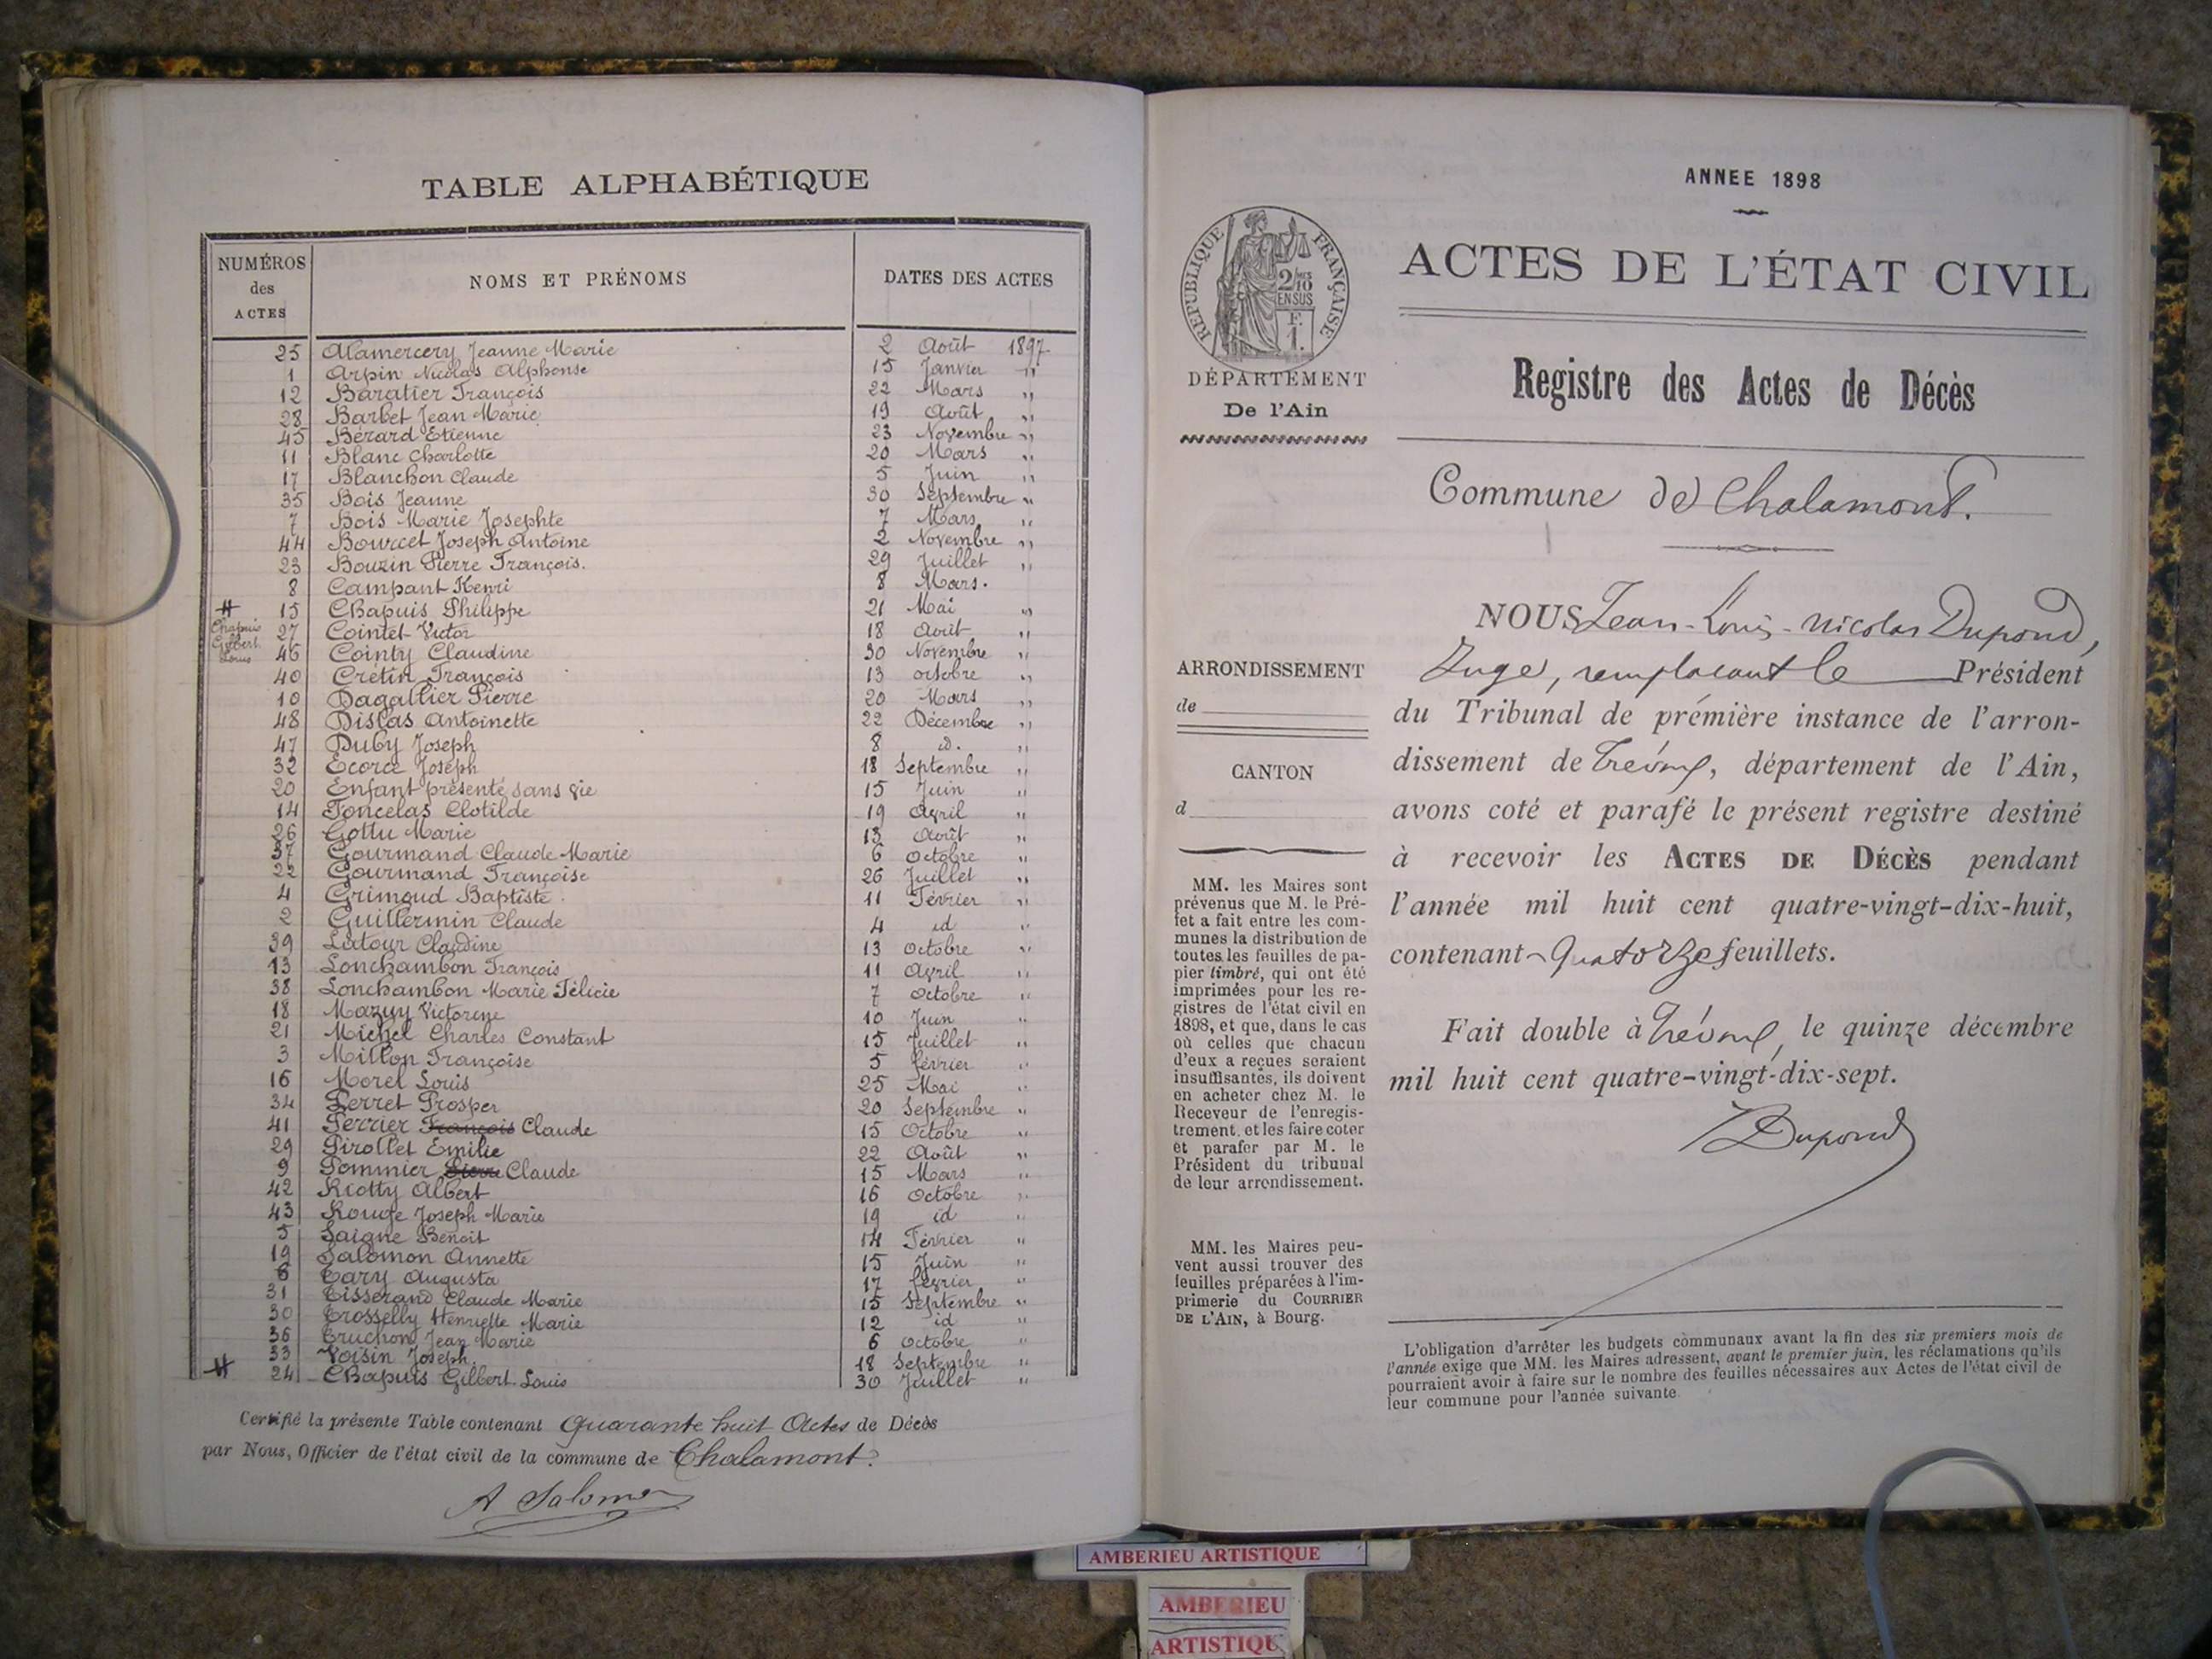 TABLE ALPHABÉTIQUE
NUMÉROS des ACTES NOMS ET PRÉNOMS DATES DES ACTES
25 Alamercery Jeanne Marie 2 Août 1897
1 Arpin Nicolas Alphonse 15 Janvier "
12 Baratier François 22 Mars "
28 Barbet Jean Marie 19 Août "
45 Bérard Etienne 23 Novembre "
11 Blanc Charlotte 20 Mars "
17 Blanchon Claude 5 Juin "
35 Bois Jeanne 30 Septembre "
7 Bois Marie Josephte 7 Mars "
44 Bourcet Joseph Antoine 2 Novembre "
23 Bouzin Pierre François. 29 Juillet "
8 Campant Henri 8 Mars.
# 15 Chapuis Philippe 21 Mai "
Chapuis Gilbert Louis
27 Cointet Victor 18 Août "
46 Cointy Claudine 30 Novembre "
40 Crétin François 13 octobre "
10 Dagallier Pierre 20 Mars "
48 Dislas Antoinette 22 Décembre "
47 Duby Joseph 8 id. "
32 Ecorce Joseph 18 Septembre "
20 Enfant présenté sans vie 15 Juin "
14 Foncelas Clotilde 19 Avril "
26 Gottu Marie 13 Août "
37 Gourmand Claude Marie 6 Octobre "
22 Gourmand Françoise 26 Juillet "
4 Grimaud Baptiste 11 Février "
2 Guillermin Claude 4 id "
39 Latour Claudine 13 Octobre "
13 Lonchambon François 11 Avril "
38 Lonchambon Marie Félicie 7 Octobre "
18 Mazuy Victorine 10 Juin "
21 Michel Charles Constant 15 Juillet "
3 Millon Françoise 5 février "
16 Morel Louis 25 Mai "
34 Perret Prosper 20 Septembre "
41 Perrier François Claude 15 Octobre "
29 Pirollet Emilie 22 Août "
9 Pommier Pierre Claude 15 Mars "
42 Riotty Albert 16 Octobre "
43 Rouge Joseph Marie 19 id "
5 Saigne Benoit 14 Février "
19 Salomon Annette 15 Juin "
6 Tary Augusta 17 février "
31 Tisserand Claude Marie 15 Septembre "
30 Trosselly Henriette Marie 12 id "
36 Truchon Jean Marie 6 Octobre "
33 Voisin Joseph. 18 Septembre "
# 24 Chapuis Gilbert Louis 30 Juillet "
Certifié la présente Table contenant quarante huit Actes de Décès
par Nous, Officier de l'état civil de la commune de Chalamont.
A Salomon
ANNEE 1898
RÉPUBLIQUE FRANÇAISE
2/10 MES EN SUS
F. 1.
DÉPARTEMENT
De l'Ain
ARRONDISSEMENT
de
CANTON
d
MM. les Maires sont
prévenus que M. le Pré-
fet a fait entre les com-
munes la distribution de
toutes les feuilles de pa-
pier timbré, qui ont été
imprimées pour les re-
gistres de l'état civil en
1898, et que, dans le cas
où celles que chacun
d'eux a reçues seraient
insuffisantes, ils doivent
en acheter chez M. le
Receveur de l'enregis-
trement, et les faire coter
et parafer par M. le
Président du tribunal
de leur arrondissement.
MM. les Maires peu-
vent aussi trouver des
feuilles préparées à l'im-
primerie du COURRIER
DE L'AIN, à Bourg.
ACTES DE L'ÉTAT CIVIL
Registre des Actes de Décès
Commune de Chalamont.
NOUS Jean-Louis-Nicolas Dupond,
Juge, remplaçant le Président
du Tribunal de prémière instance de l'arron-
dissement de Trévoux, département de l'Ain,
avons coté et parafé le présent registre destiné
à recevoir les ACTES DE DÉCÈS pendant
l'année mil huit cent quatre-vingt-dix-huit,
contenant quatorze feuillets.
Fait double à Trévoux, le quinze décembre
mil huit cent quatre-vingt-dix-sept.
Dupond
L'obligation d'arrêter les budgets communaux avant la fin des six premiers mois de
l'année exige que MM. les Maires adressent, avant le premier juin, les réclamations qu'ils
pourraient avoir à faire sur le nombre des feuilles nécessaires aux Actes de l'état civil de
leur commune pour l'année suivante.
AMBERIEU ARTISTIQUE
AMBERIEU
ARTISTIQU